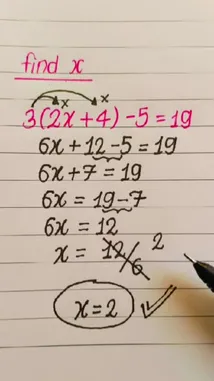 find x
x x
3(2x+4)-5=19
6x+12-5=19
6x+7=19
6x=19-7
6x=12
x=12/6 2
x=2 ✓